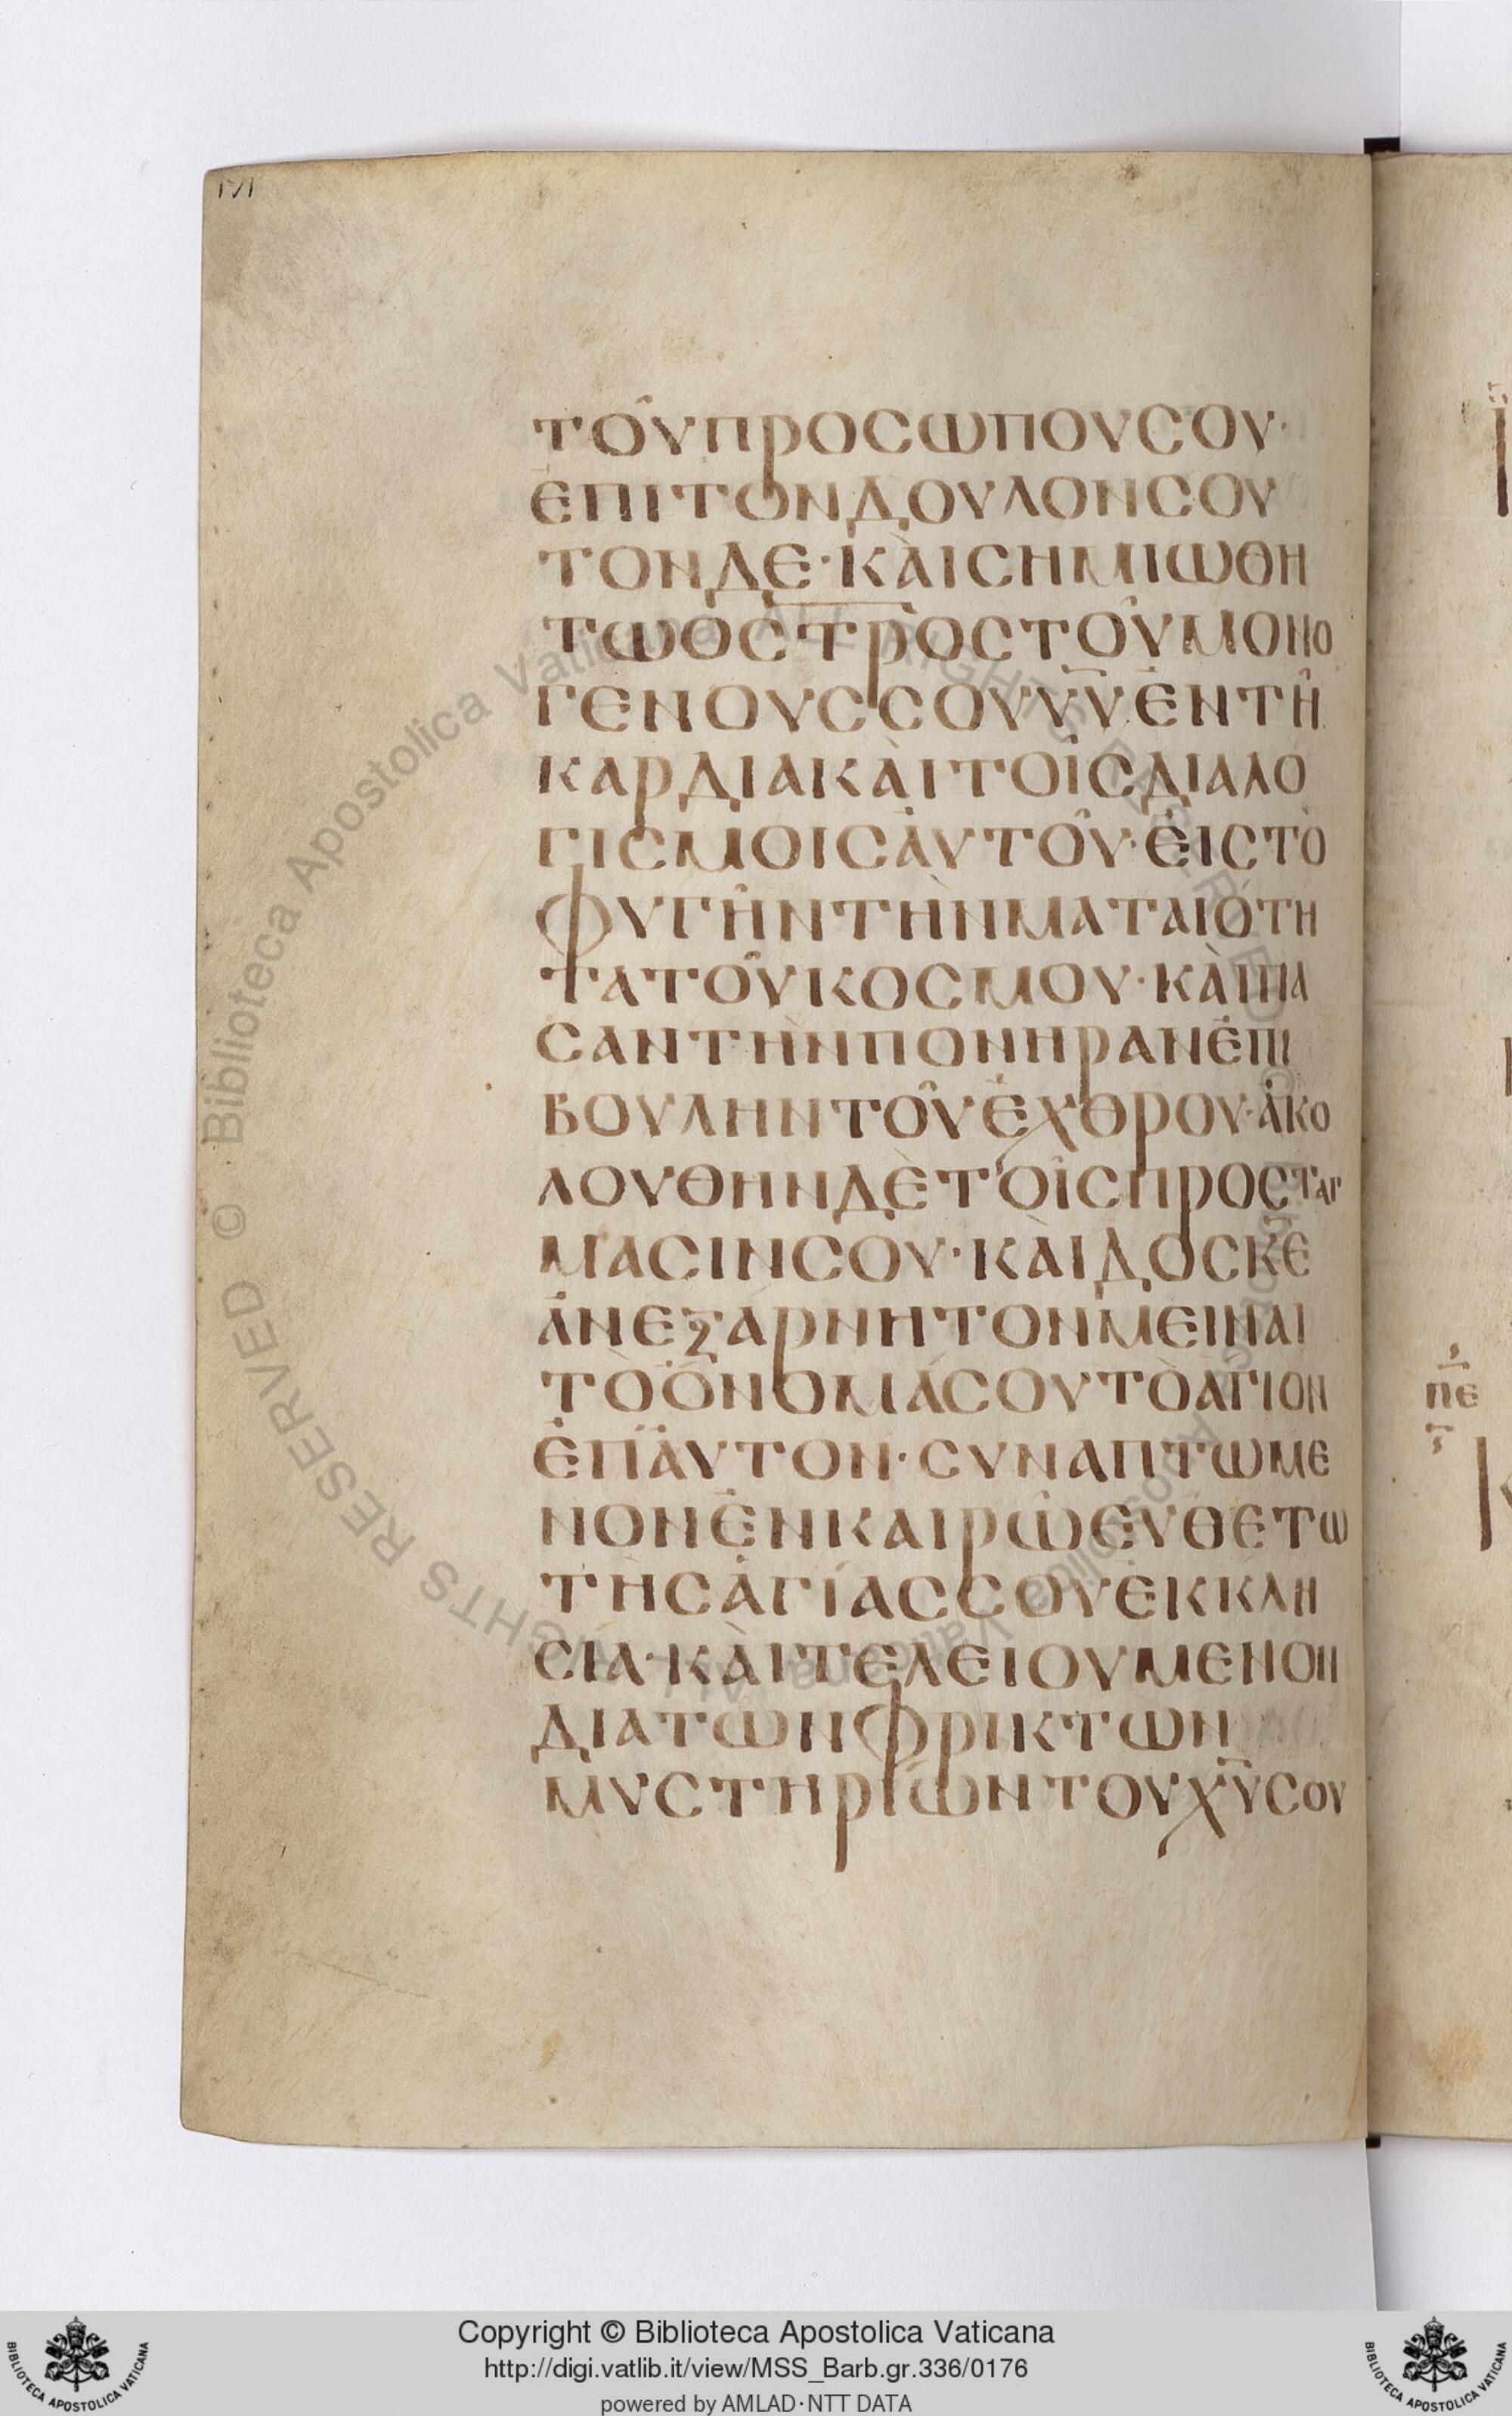 ΤΟΥ͂ΠΡΟСΩΠΟΥСΟΥ·
ΕΠΙΤΟΝΔΟΥΛΟΝСΟΥ
ΤΟΝΔΕ·ΚᾺΙСΗΜΙΩΘΗ
ΤΩΟС̅Τ̅Ρ̅ΟСΤΟΥ͂ΜΟΝΟ
ΓΕΝΟΥССΟΥΥ̅Υ̅ἘΝΤΗ͂
ΚΑΡΔΙΑΚᾺΙΤΟΙ͂СΔΙΑΛΟ
ΓΙСΜΟΙСἈΥΤΟΥ͂·ἘΙСΤῸ
ΦΥΓΗ͂ΝΤῊΝΜΑΤΑΙΌΤΗ
ΤΑΤΟΥ͂ΚΟСΜΟΥ·ΚᾺΙΠΑ
СΑΝΤῊΝΠΟΝΗΡΑΝἘΠΙ
ΒΟΥΛΗΝΤΟΥ͂ἘΧΘΡΟΥ·ἈΚΟ
ΛΟΥΘΗΝΔῈΤΟΙ͂СΠΡΟСΤΑΓ
ΜΑСΙΝСΟΥ·ΚᾺΙΔΟСΚ̅Ε̅
ἈΝΕΞΆΡΝΗΤΟΝΜΕΙΝΑΙ
ΤῸὌΝΟΜΆСΟΥΤῸΑΓΙΟΝ
ἘΠΑΥΤΟΝ·СΥΝΑΠΤΩΜΕ
ΝΟΝἘΝΚΑΙΡΩΕΥΘΕΤΩ
ΤΗСἉΓΊΑССΟΥἘΚΚΛΗ
СΙΑ·ΚᾺΙΤΕΛΕΙΟΥΜΕΝΟΝ
ΔΙΑΤΩΝΦΡΙΚΤΩΝ
ΜΥСΤΗΡΙΩΝΤΟΥΧ̅Υ̅СΟΥ
© Biblioteca Apostolica Vaticana ALL RIGHTS RESERVED
Copyright © Biblioteca Apostolica Vaticana
http://digi.vatlib.it/view/MSS_Barb.gr.336/0176
powered by AMLAD·NTT DATA
BIBLIOTECA APOSTOLICA VATICANA
BIBLIOTECA APOSTOLICA VATICANA